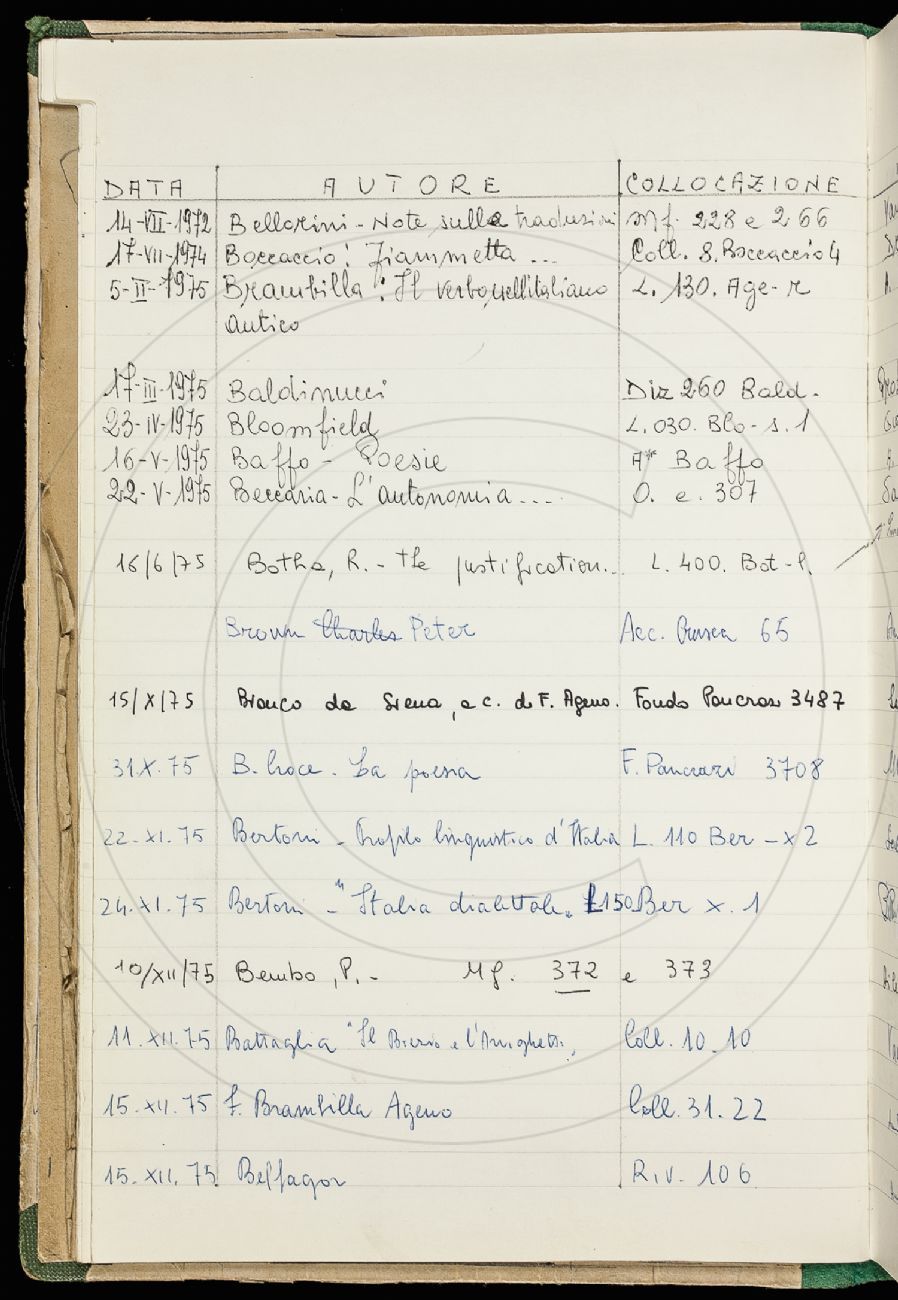 DATA AUTORE COLLOCAZIONE
14-VII-1972 Bellorini - Note sulla traduzioni Mf. 228 e 266
17-VII-1974 Boccaccio: Fiammetta ... Coll. S. Boccaccio 4
5-II-1975 Brambilla: Il verbo nell'italiano L. 130. Age-r
antico
17-III-1975 Baldinucci Diz 260 Bald.
23-IV-1975 Bloomfield L.030. Blo-s.1
16-V-1975 Baffo - Poesie A* Baffo
22-V-1975 Beccaria - L'autonomia .... O. e. 307
16/6/75 Botha, R. - the justification... L. 400. Bot-P.
Brown Charles Peter Acc. Crusca 65
15/X/75 Bianco da Siena, a c. di F. Ageno. Fondo Pancrazi 3487
31.X.75 B. Croce. La poesia F. Pancrazi 3708
22.XI.75 Bertoni - Profilo linguistico d'Italia L. 110 Ber - x 2
24.XI.75 Bertoni - "Italia dialettale" L150 Ber x. 1
10/XII/75 Bembo, P. - Mf. 372 e 373
11.XII.75 Battaglia "Il e l'" Coll. 10.10
15.XII.75 F. Brambilla Ageno Coll. 31.22
15.XII.75 Belfagor Riv. 106